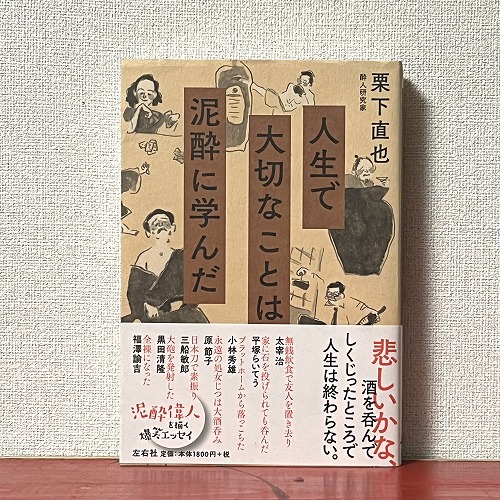 人生で
大切なことは
泥酔に学んだ
栗下直也
酔人研究家
悲しいかな、
酒を呑んで
しくじったところで
人生は終わらない。
無銭飲食で友人を置き去り
太宰治
家に石を投げられても呑んだ
平塚らいてう
プラットホームから落っこちた
小林秀雄
永遠の処女じつは大酒呑み
原節子
日本刀で素振り
三船敏郎
大砲を発射した
黒田清隆
全裸になった
福澤諭吉
泥酔偉人
を描く
爆笑エッセイ
左右社 定価:本体1800円+税